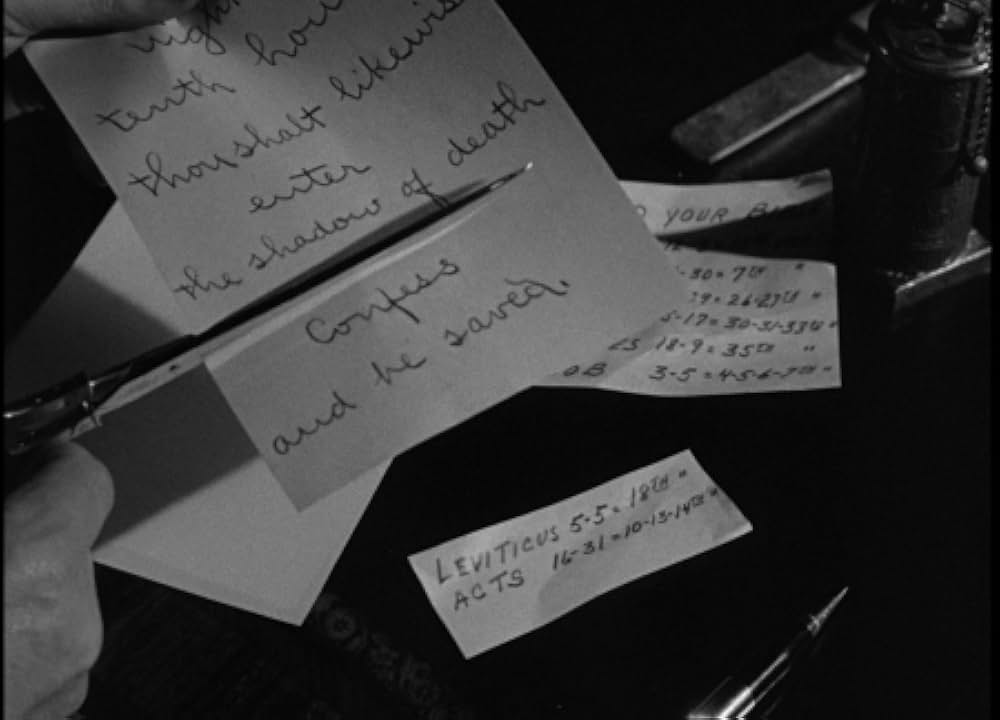 tenth hour
thou shalt likewise
enter
the shadow of death
Confess
and be saved.
YOUR
-30=7TH "
19=26-27TH "
5-17=30-31-33RD "
ES 18-9=35TH "
OB 3-5=4-5-6-7TH "
LEVITICUS 5-5=18TH "
ACTS 16-31=10-13-14TH "